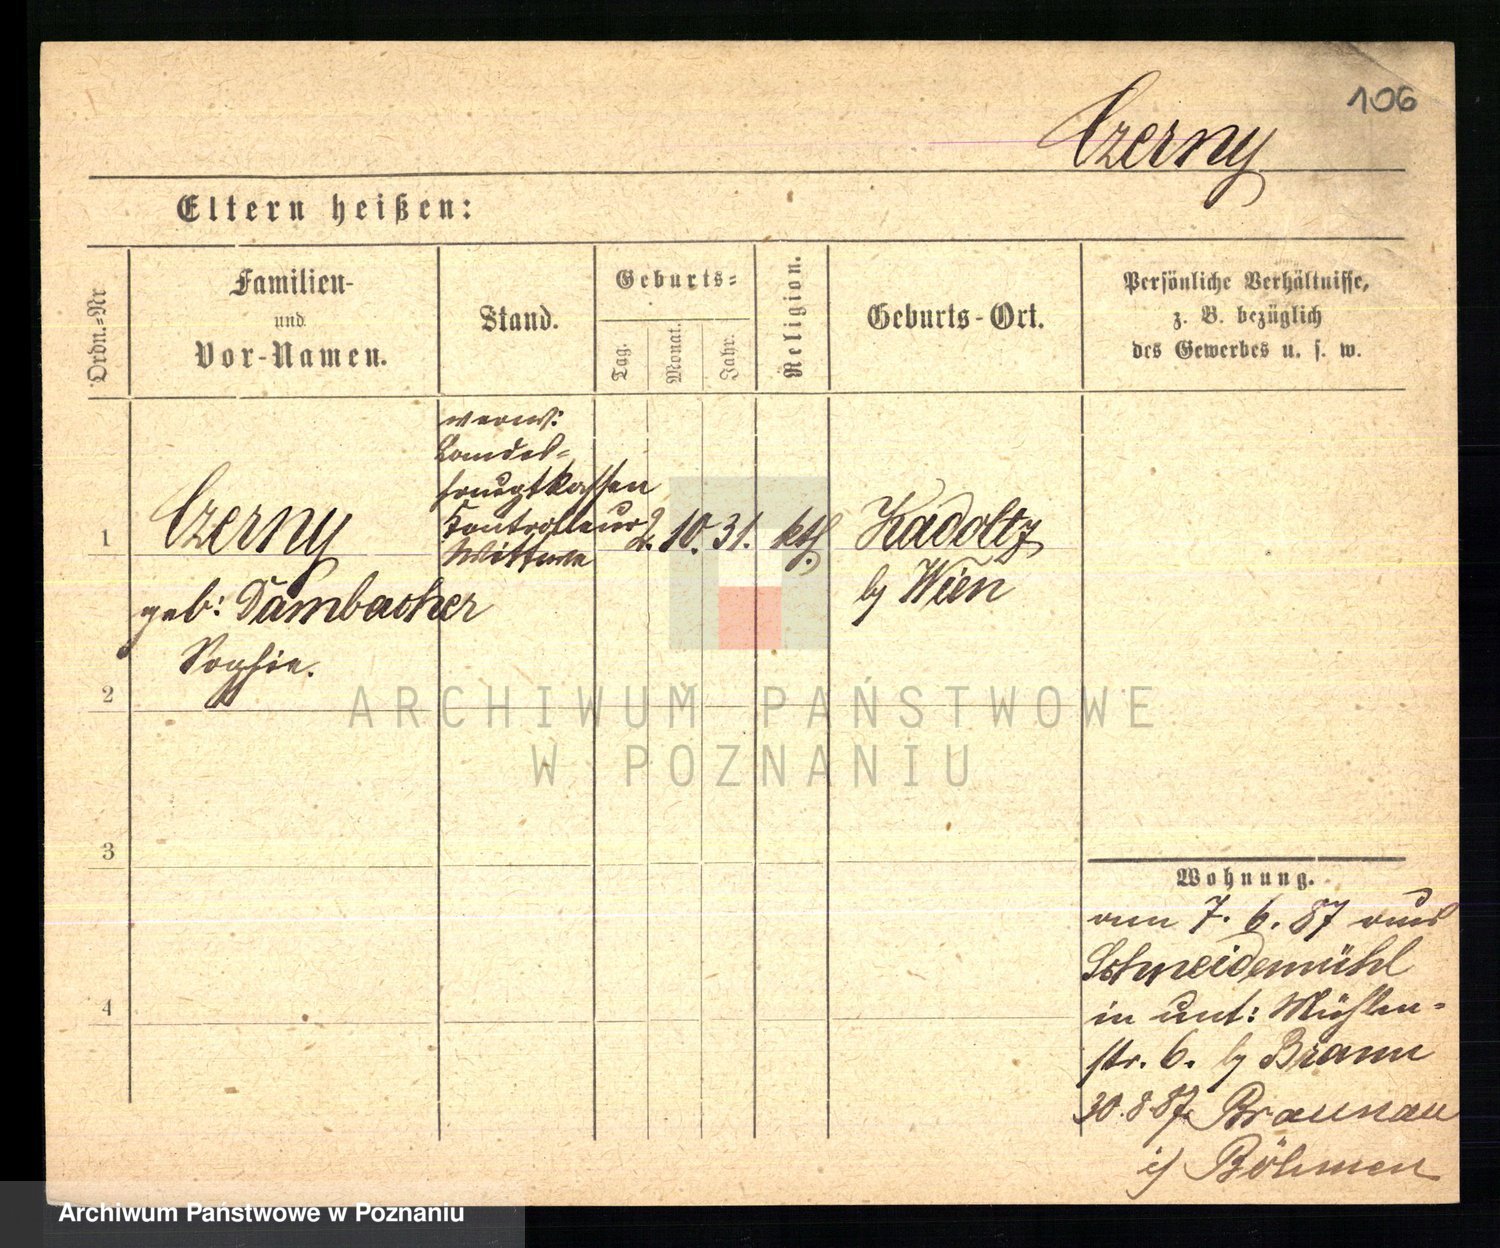 106
Czerny
Eltern heißen:
Ordn.-Nr
Familien-
und
Vor-Namen.
Stand.
Geburts-
Tag.
Monat.
Jahr.
Religion.
Geburts-Ort.
Persönliche Verhältnisse,
z. B. bezüglich
des Gewerbes u. s. w.
1
Czerny
geb: Dambacher
Sophie.
verw:
Landes-
hauptkassen
Kontrolleur
Wittwe
2. 10. 31. kth.
Kadoltz
by Wien
2
3
4
Wohnung.
am 7. 6. 87 aus
Schneidemühl
in unt: Mühlen-
str. 6. by Bramm
30.8.87. Braunau
i/ Böhmen
ARCHIWUM PAŃSTWOWE
W POZNANIU
Archiwum Państwowe w Poznaniu